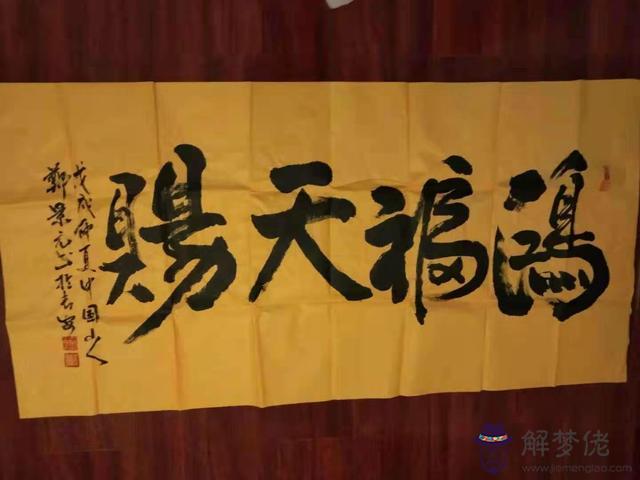 鴻福天賜
戊戌仲夏中国山人
鄭景元书於長安
解梦佬
www.jiemenglao.com